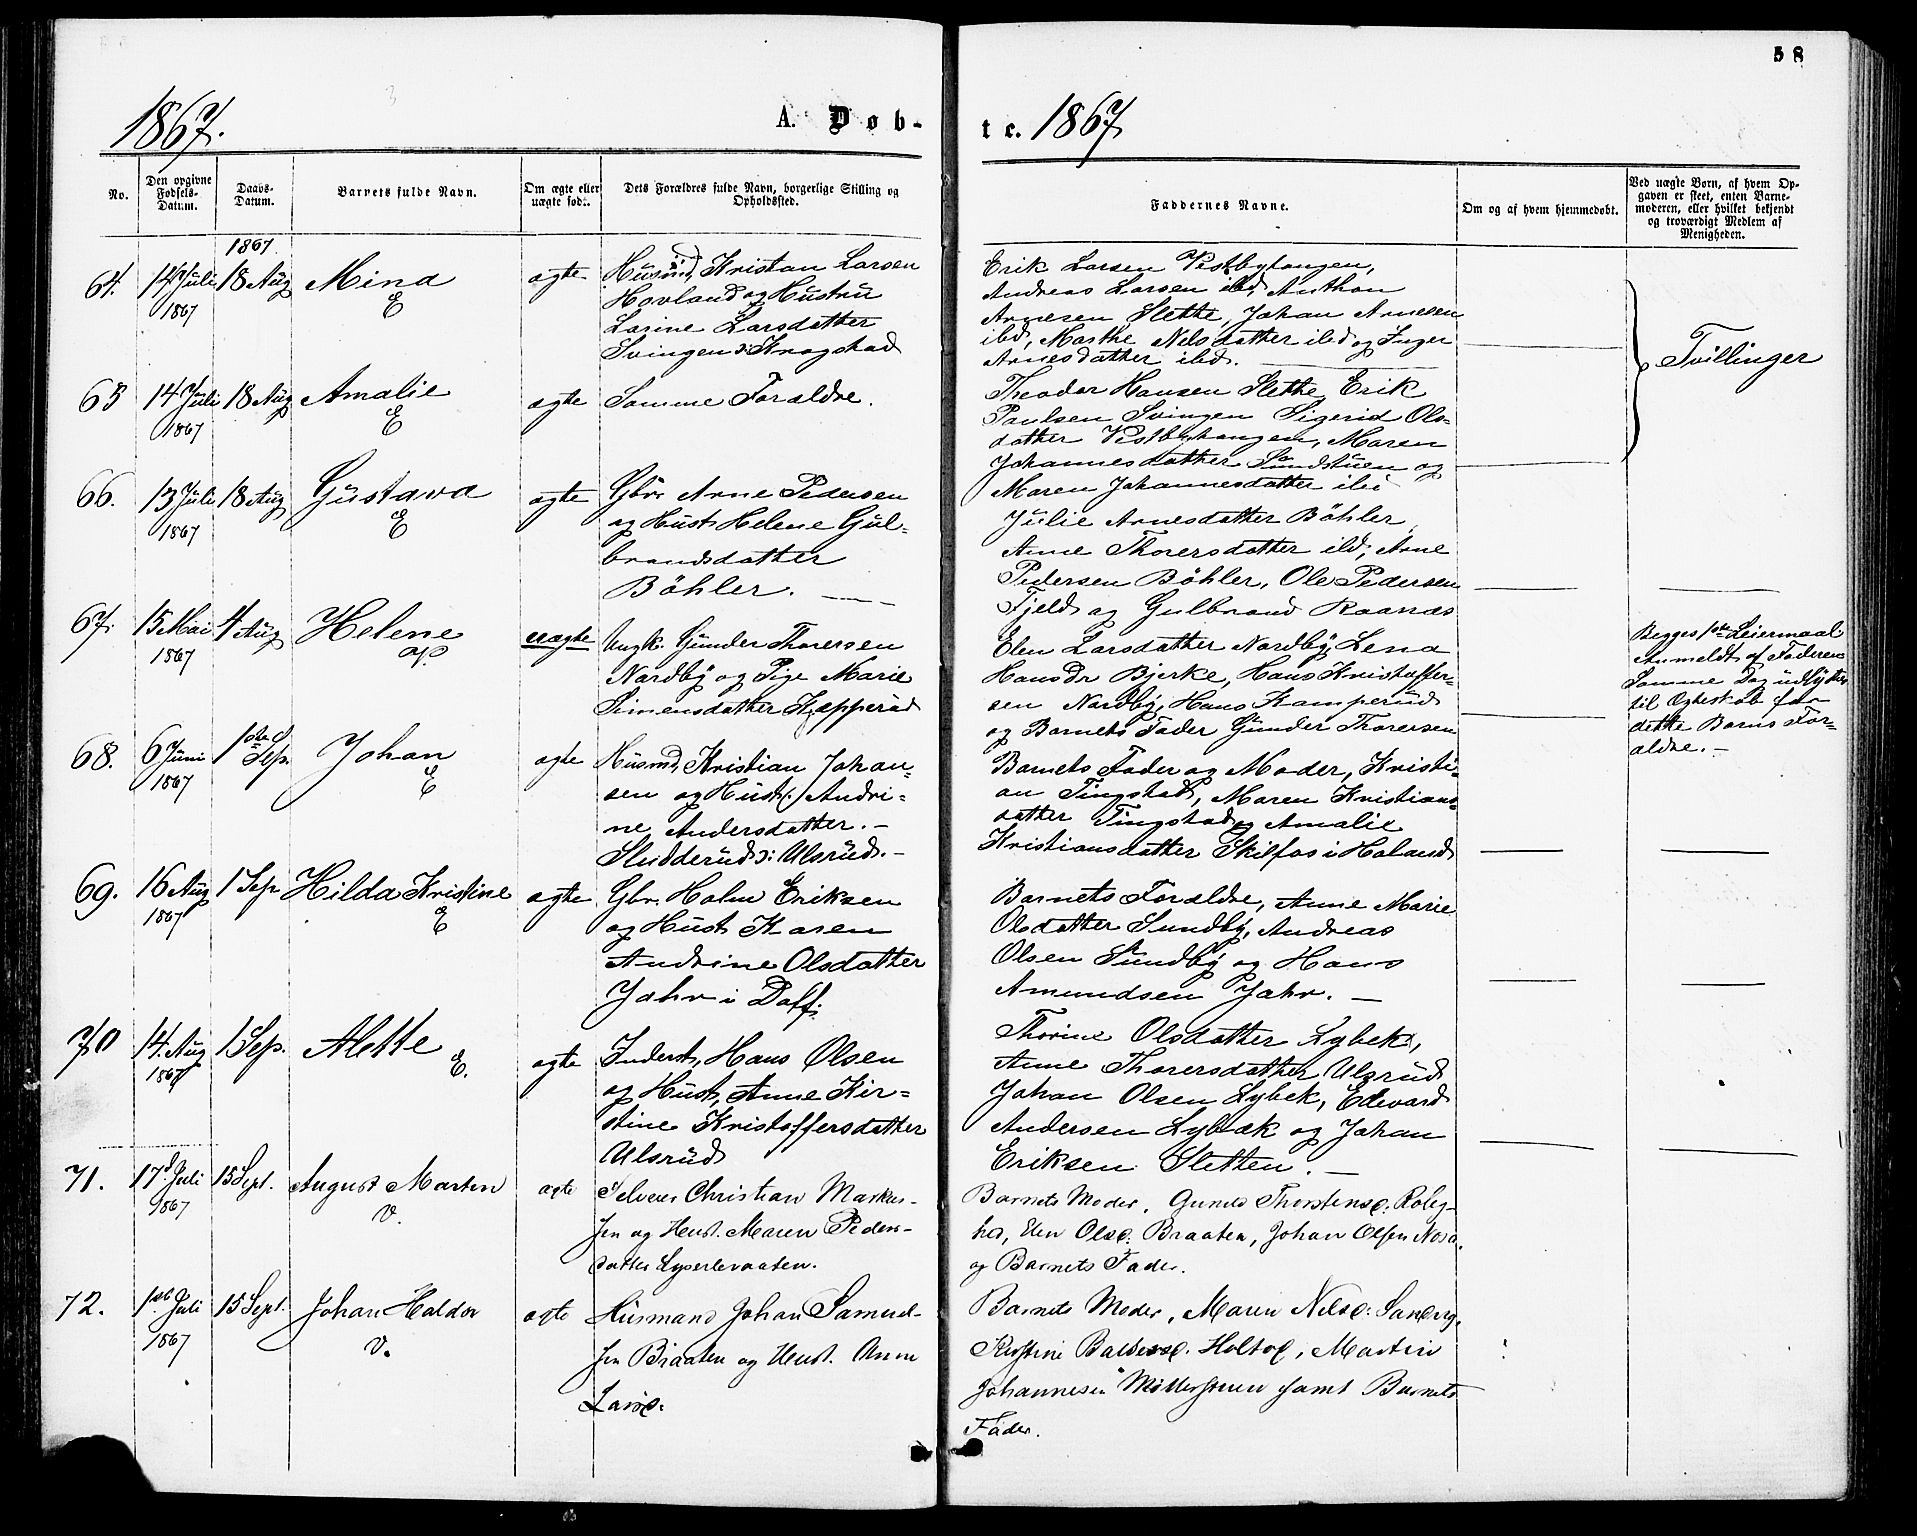 58
1867.
A. Døb-
te. 1867
No.
Den opgivne Fødsels-Datum.
Daabs-Datum.
Barnets fulde Navn.
Om ægte eller uægte født.
Dets Forældres fulde Navn, borgerlige Stilling og Opholdssted.
Faddernes Navne.
Om og af hvem hjemmedøbt.
Ved uægte Børn, af hvem Opgaven er skeet, enten Barnemoderen, eller hvilket bekjendt og troværdigt Medlem af Menigheden.
1867
64. 14 Juli 1867 18 Aug Mina E ægte
Husmd, Kristian Larsen
Hovland og Hustru
Larine Larsdatter
Svingen i Kragstad
Erik Larsen Vestbytangen,
Andreas Larsen ibd, Anthon
Arnesen Slette, Johan Arnesen
ibd, Marthe Nilsdatter ibd og Inger
Arnesdatter ibd.
Tvillinger
65 14 Juli 1867 18 Aug Amalie E ægte
Samme Forældre.
Theodor Hansen Slette, Erik
Paulsen Svingen Sigerid Ols-
datter Vestbytangen, Maren
Johannesdatter Sandstuen og
Maren Johannesdatter ibd
66. 13 Juli 1867 18 Aug Gustava E ægte
Gbr. Arne Pedersen
og Hust. Helene Gul-
brandsdatter
Bøhler.
Julie Arnesdatter Bøhler,
Anne Thorersdatter ibd, Arne
Pedersen Bøhler, Ole Pedersen
Fjeld og Gulbrand Raanaas
67. 15 Mai 1867 4 Aug Helene uægte
Ungk. Gunder Thorersen
Nordby og Pige Marie
Simensdatter Kæpperud
Elen Larsdatter Nordby, Lena
HansDr Bjerke, Hans Kristoffer-
sen Nordby, Hans Kamperud
og Barnets Fader Gunder Thorersen
Begges 1ste Leiermaal
Anmeldt af Faderen
Samme Dag udlyster
til Ægteskab for
dette Barns For-
ældre.
68. 6 Juni 1867 1ste Sep. Johan E ægte
Husmd, Kristian Johan-
sen og Hust. Andri-
ne Andersdatter.
Sludderud i Ulsrud.
Barnets Fader og Moder, Kristi-
an Tingstad, Maren Kristians-
datter Tingstad og Amalie
Kristiansdatter Skilfos i Høland
69. 16 Aug 1867 1 Sep Hilda Kristine E ægte
Gbr. Holm Eriksen
og Hust. Karen
Andrine Olsdatter
Jahr i
Barnets Forældre, Anne Marie
Olsdatter Sundby, Andreas
Olsen Sundby og Hans
Amundsen Jahr.
70 14. Aug 1867 1 Sep. Alette E. ægte
Inderst, Hans Olsen
og Hust, Anne Kir-
stine Kristoffersdatter
Ulsrud
Thorine Olsdatter Lybek,
Anne Thorersdatter Ulsrud
Johan Olsen Lybek, Edevard
Andersen Lybæk og Johan
Eriksen Sletten.
71. 17d Juli 1867 15 Sept. August Martin V. ægte
Selveier Christian Markus-
sen og Hust. Maren Peders-
datter
Barnets Moder, Gunild Thorstensd.
Elen Olsd. Braaten, Johan Olsen
og Barnets Fader.
72. 1ste Juli 1867 15 Sept. Johan Haldor V. ægte
Husmand Johan Samuel-
sen Braaten og Hust. Anne
Larsd.
Barnets Moder, Maren Nilsd. Sandvig,
Kirstine Holtop, Martin
Johannesen Møllerstuen samt Barnets
Fader.